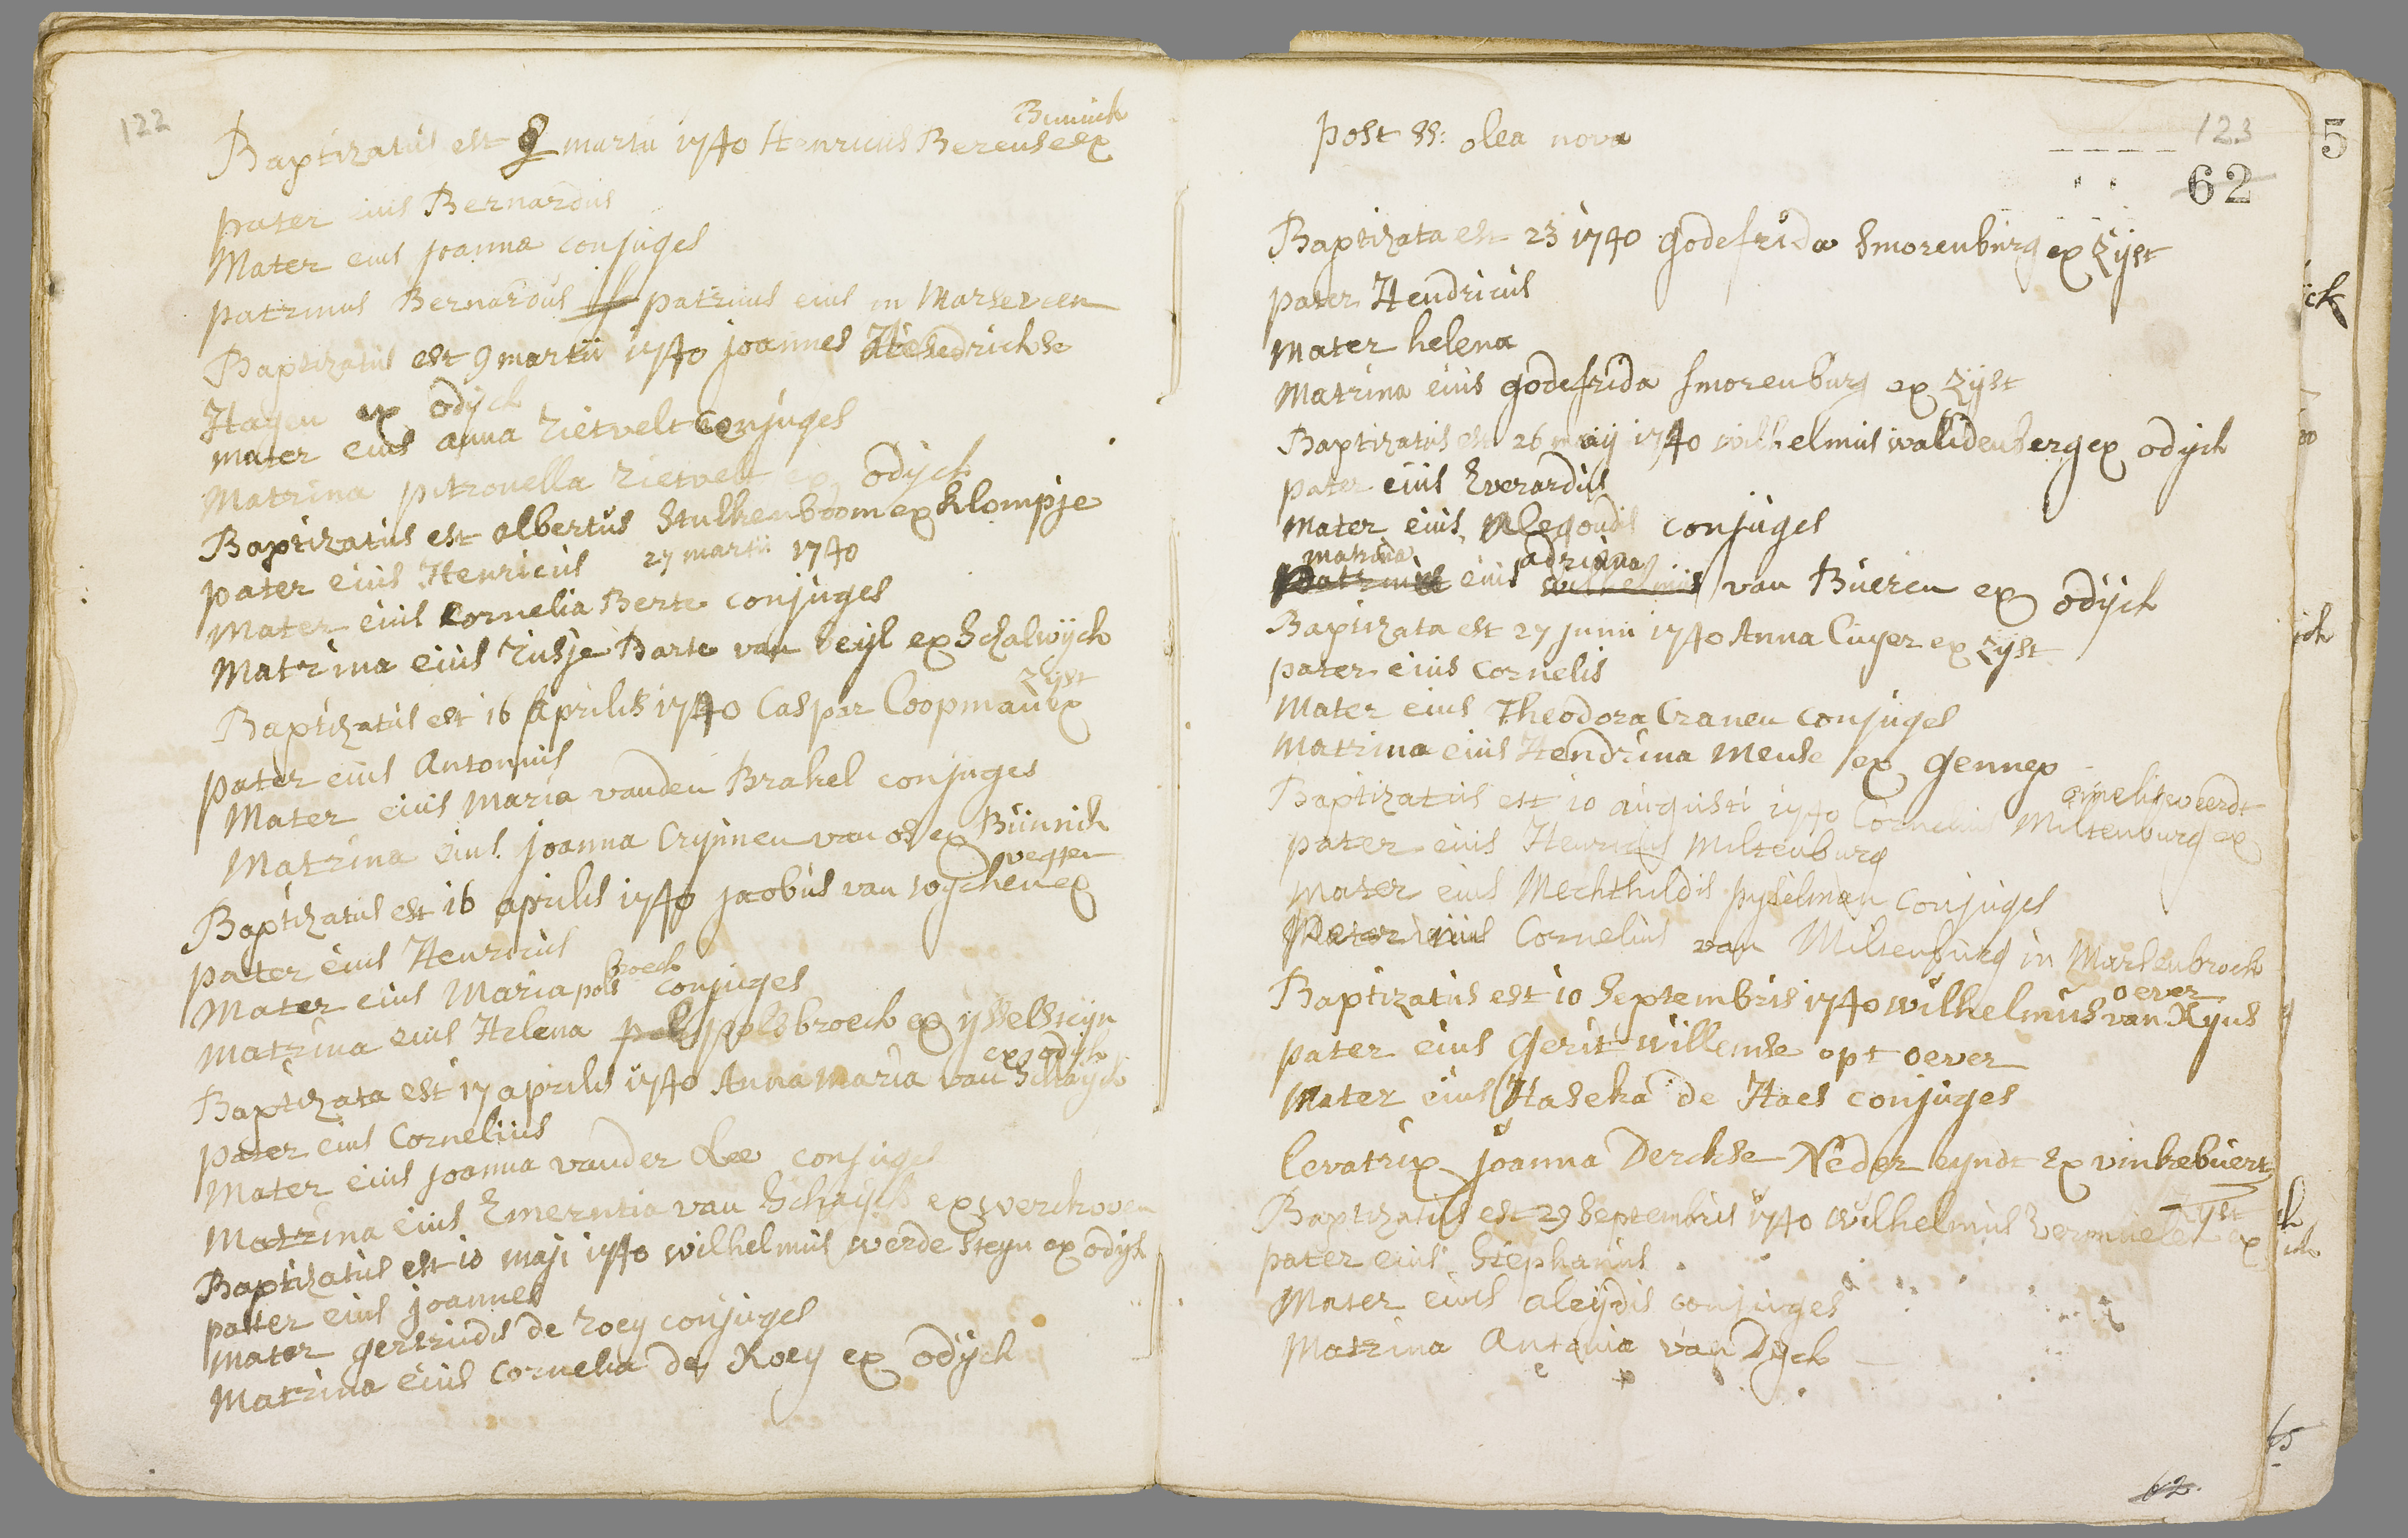 122
Bunnich
Baptizatus est 8 martii 1740 Henricus Berense ex
pater eius Bernardus
Mater eius joanna conjuges
patrinus Bernardus patruus eius in Marseveen
Baptizatus est 9 martii 1740 joannes Hendrickse
Hagen ex odijck
mater eius anna rietvelt conjuges
Matrina petronella rietvelt ex odijck
Baptizatus est albertus Stulkenboom ex klompje
pater eius Henricus 27 martii 1740
Mater eius Cornelia Berte conjuges
Matrina eius Barte van ex Schalwijck
Zyst
Baptizatus est 16 Aprilis 1740 Caspar Coopman ex
pater eius Antonius
Mater eius Maria vanden Brakel conjuges
Matrina eius joanna Crijnnen van os ex Bunnick
vegten
Baptizatus est 16 aprilis 1740 jacobus van ex
pater eius Henricus
broeck
Mater eius Maria pols conjuges
Matrina eius Helena polsbroeck ex ijsselsteyn
ex odijk
Baptizata est 17 aprilis 1740 Anna maria van Schaijck
pater eius Cornelius
Mater eius joanna vander Lee conjuges
Matrina eius Emerentia van Schaijck ex werckoven
Baptizatus est 10 maji 1740 wilhelmus werdesteyn ex odijk
pater eius joannes
Mater gertrudis de roey conjuges
Matrina eius cornelia de Roey ex odijck
123
62
post ss: olea nova
Baptizata est 23 1740 godefrida Smorenburg ex Zyst
pater Hendricus
Mater helena
Matrina eius godefrida smorenburg ex Zyst
Baptizatus est 26 maij 1740 wilhelmus ex odijck
pater eius Everardus
Mater eius conjuges
matrina adriana
patrinus eius wilhelmus van Bueren ex odijck
Baptizata est 27 junii 1740 Anna Cuyer ex Zyst
pater eius cornelis
Mater eius Theodora Cranen conjuges
Matrina eius Hendrina Mense ex gennep
amelisweerdt
Baptizatus est 10 augusti 1740 Cornelius Miltenburg ex
pater eius Henricus Miltenburg
Mater eius Mechthildis pyselman conjuges
eius Cornelius van Miltenburg in Marsenbroeck
oever
Baptizatus est 10 Septembris 1740 wilhelmus van Ryns
pater eius gerit willemse opt oever
Mater eius Haseka de Haes conjuges
levatrix joanna Derckse Neder eyndt ex vinkebuert
Zyst
Baptizatus est 29 Septembris 1740 wilhelmus Vermuelen ex
pater eius Stephanus
Mater eius aleijdis conjuges
Matrina Antonia van Dyck
62.
5
ck
ich
65